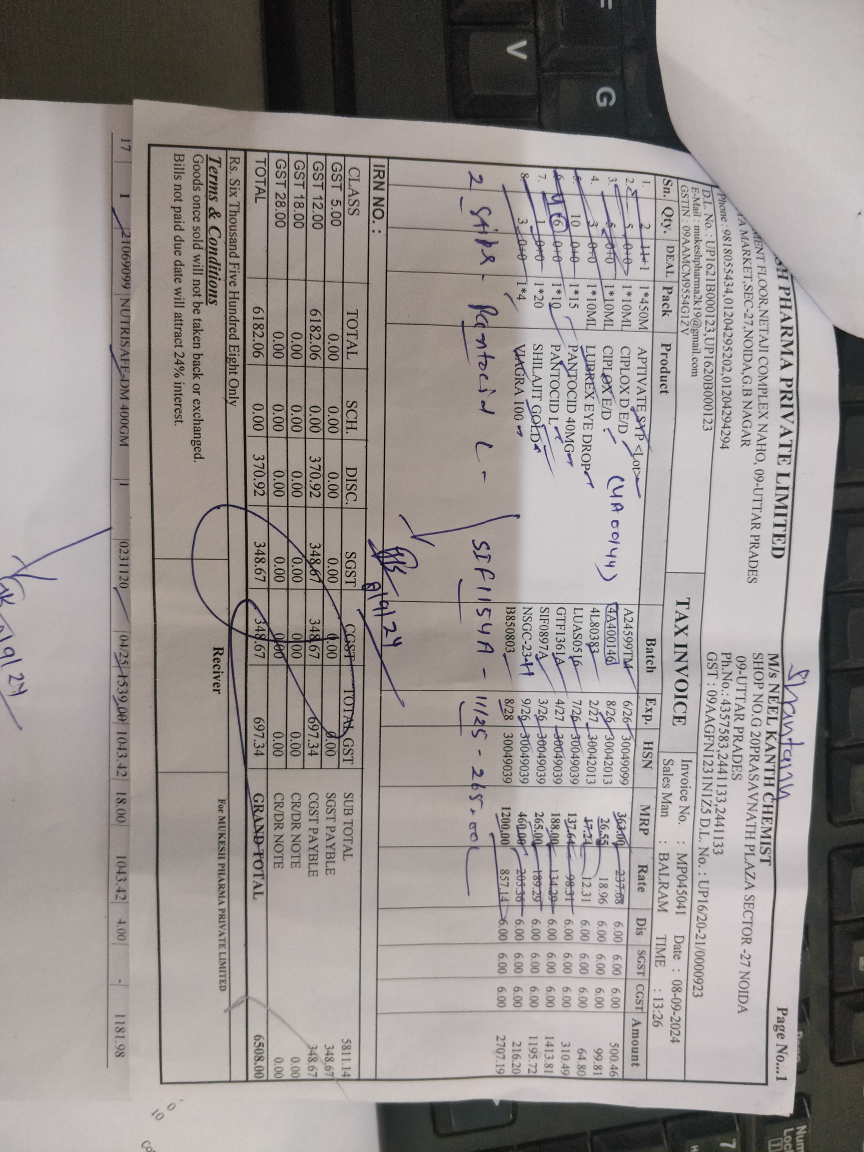 SH PHARMA PRIVATE LIMITED
MENT FLOOR,NETAJI COMPLEX NAHO, 09-UTTAR PRADES
MA MARKET,SEC-27,NOIDA,G.B NAGAR
Phone : 9818055434,01204295202,01204294294
D.L. No. : UP1621B000123,UP1620B000123
E-Mail : mukeshpharma2k19@gmail.com
GSTIN : 09AAMCM9554G1ZV
TAX INVOICE
Page No...1
Shantanu
M/s NEEL KANTH CHEMIST
SHOP NO.G 20PRASAVNATH PLAZA SECTOR -27 NOIDA
09-UTTAR PRADES
Ph.No.: 4357583,2441133,2441133
GST : 09AAGFN1231N1Z5 D.L. No. : UP16/20-21/0000923
Invoice No. : MP045041 Date : 08-09-2024
Sales Man : BALRAM TIME : 13:26
Sn. Qty. DEAL Pack Product Batch Exp. HSN MRP Rate Dis SGST CGST Amount
1. 2 11+1 1*450M APTIVATE SYP <Lot> A24599TM 6/26 30049099 363.00 237.08 6.00 6.00 6.00 500.46
2. 5 0+0 1*10ML CIPLOX D E/D 4A400146 8/26 30042013 26.55 18.96 6.00 6.00 6.00 99.81
3. 5 0+0 1*10ML CIPLOX E/D (4A00144) 4L80383 2/27 30042013 17.24 12.31 6.00 6.00 6.00 64.80
4. 3 0+0 1*10ML LUBREX EYE DROP LUAS0516 7/26 30049039 137.64 98.31 6.00 6.00 6.00 310.49
5. 10 0+0 1*15 PANTOCID 40MG GTF1361A 4/27 30049039 188.00 134.29 6.00 6.00 6.00 1413.81
6. 6 0+0 1*10 PANTOCID L SIF0897A 3/26 30049039 265.00 189.29 6.00 6.00 6.00 1195.72
7. 1 0+0 1*20 SHILAJIT GOLD NSGC-23-11 9/26 30049039 460.00 205.36 6.00 6.00 6.00 216.20
8. 3 0+0 1*4 VIAGRA 100 B850803 8/28 30049039 1200.00 857.14 6.00 6.00 6.00 2707.19
2 Stips - Pantocid L - SIF1154A - 11/25 - 265.00
IRN NO. :
8/9/24
CLASS TOTAL SCH. DISC. SGST CGST TOTAL GST
GST 5.00 0.00 0.00 0.00 0.00 0.00 0.00
GST 12.00 6182.06 0.00 370.92 348.67 348.67 697.34
GST 18.00 0.00 0.00 0.00 0.00 0.00 0.00
GST 28.00 0.00 0.00 0.00 0.00 0.00 0.00
TOTAL 6182.06 0.00 370.92 348.67 348.67 697.34
SUB TOTAL 5811.14
SGST PAYBLE 348.67
CGST PAYBLE 348.67
CR/DR NOTE 0.00
CR/DR NOTE 0.00
GRAND TOTAL 6508.00
Rs. Six Thousand Five Hundred Eight Only
Terms & Conditions
Goods once sold will not be taken back or exchanged.
Bills not paid due date will attract 24% interest.
Reciver
For MUKESH PHARMA PRIVATE LIMITED
17 1 21069099 NUTRISAFE-DM 400GM 1 0231120 04/25 1539.00 1043.42 18.00 1043.42 4.00 - 1181.98
8/9/24
G
V
F
Num
Lock
7